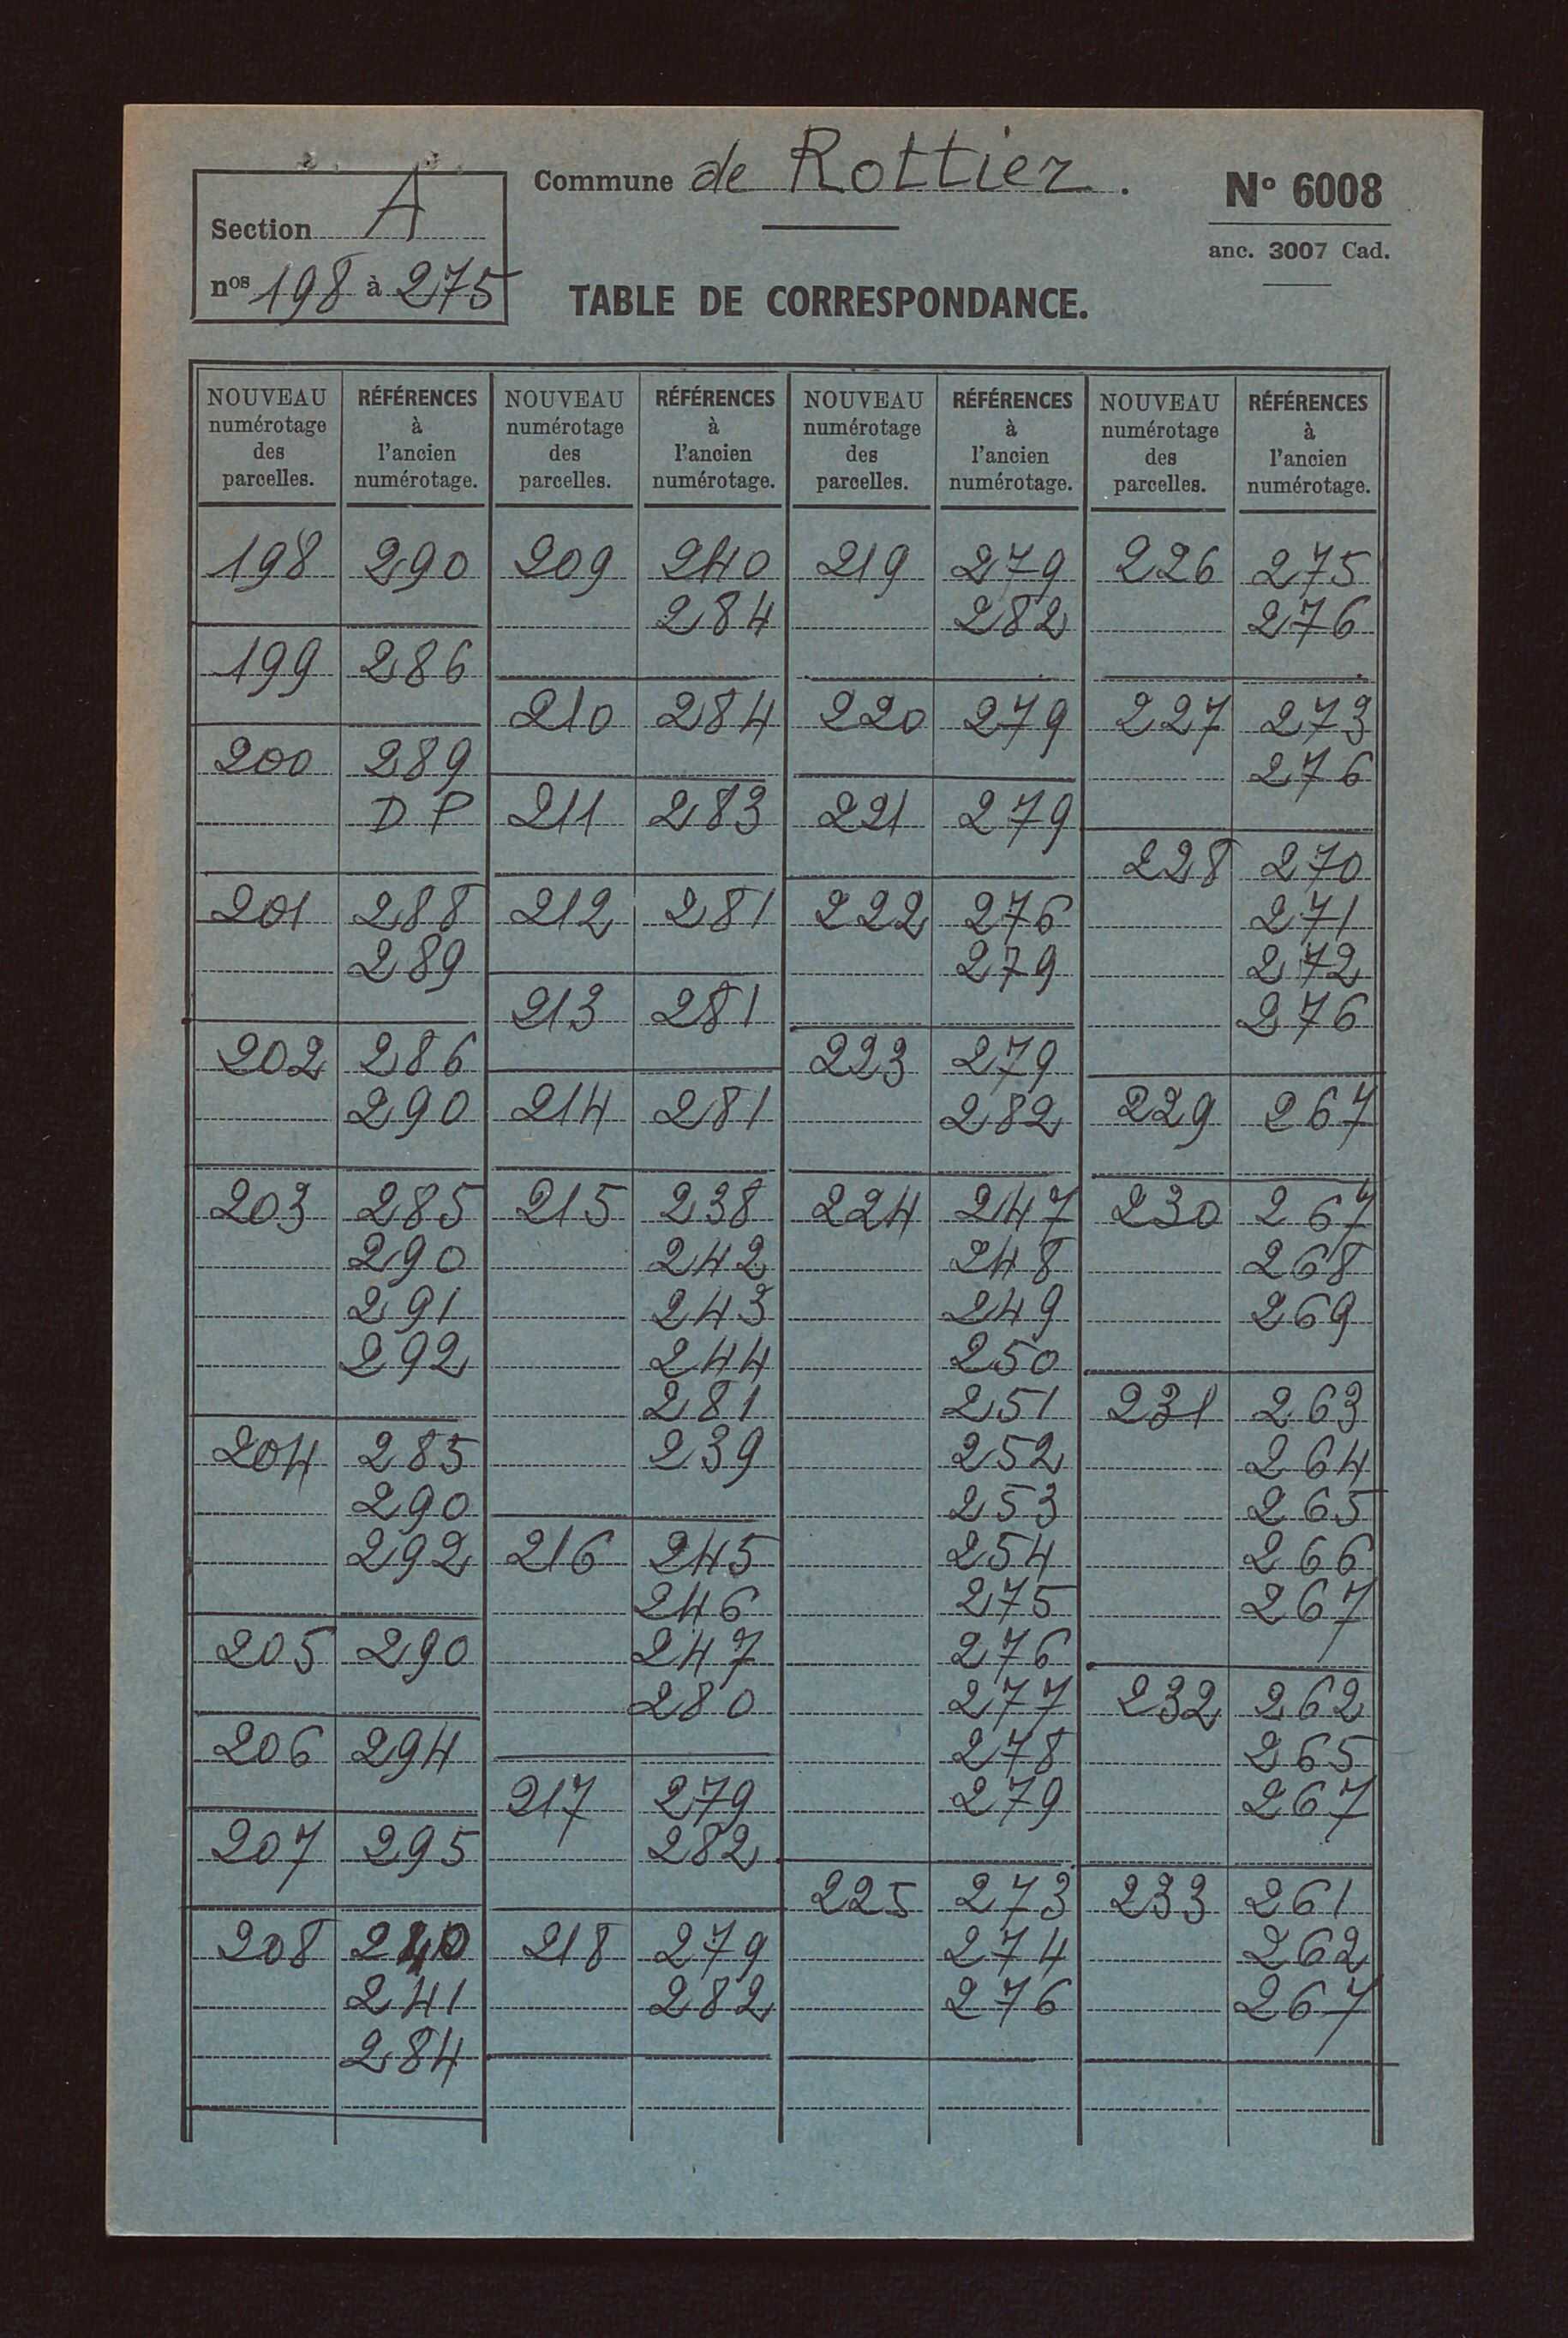 Section A
nos 198 à 275
Commune de Rottier.
N° 6008
anc. 3007 Cad.
TABLE DE CORRESPONDANCE.
NOUVEAU numérotage des parcelles. RÉFÉRENCES à l'ancien numérotage.
198 290
199 286
200 289
D P
201 288
289
202 286
290
203 285
290
291
292
204 285
290
292
205 290
206 294
207 295
208 240
241
284
NOUVEAU numérotage des parcelles. RÉFÉRENCES à l'ancien numérotage.
209 240
284
210 284
211 283
212 281
213 281
214 281
215 238
242
243
244
281
239
216 245
246
247
280
217 279
282
218 279
282
NOUVEAU numérotage des parcelles. RÉFÉRENCES à l'ancien numérotage.
219 279
282
220 279
221 279
222 276
279
223 279
282
224 247
248
249
250
251
252
253
254
275
276
277
278
279
225 273
274
276
NOUVEAU numérotage des parcelles. RÉFÉRENCES à l'ancien numérotage.
226 275
276
227 273
276
228 270
271
272
276
229 267
230 267
268
269
231 263
264
265
266
267
232 262
265
267
233 261
262
267